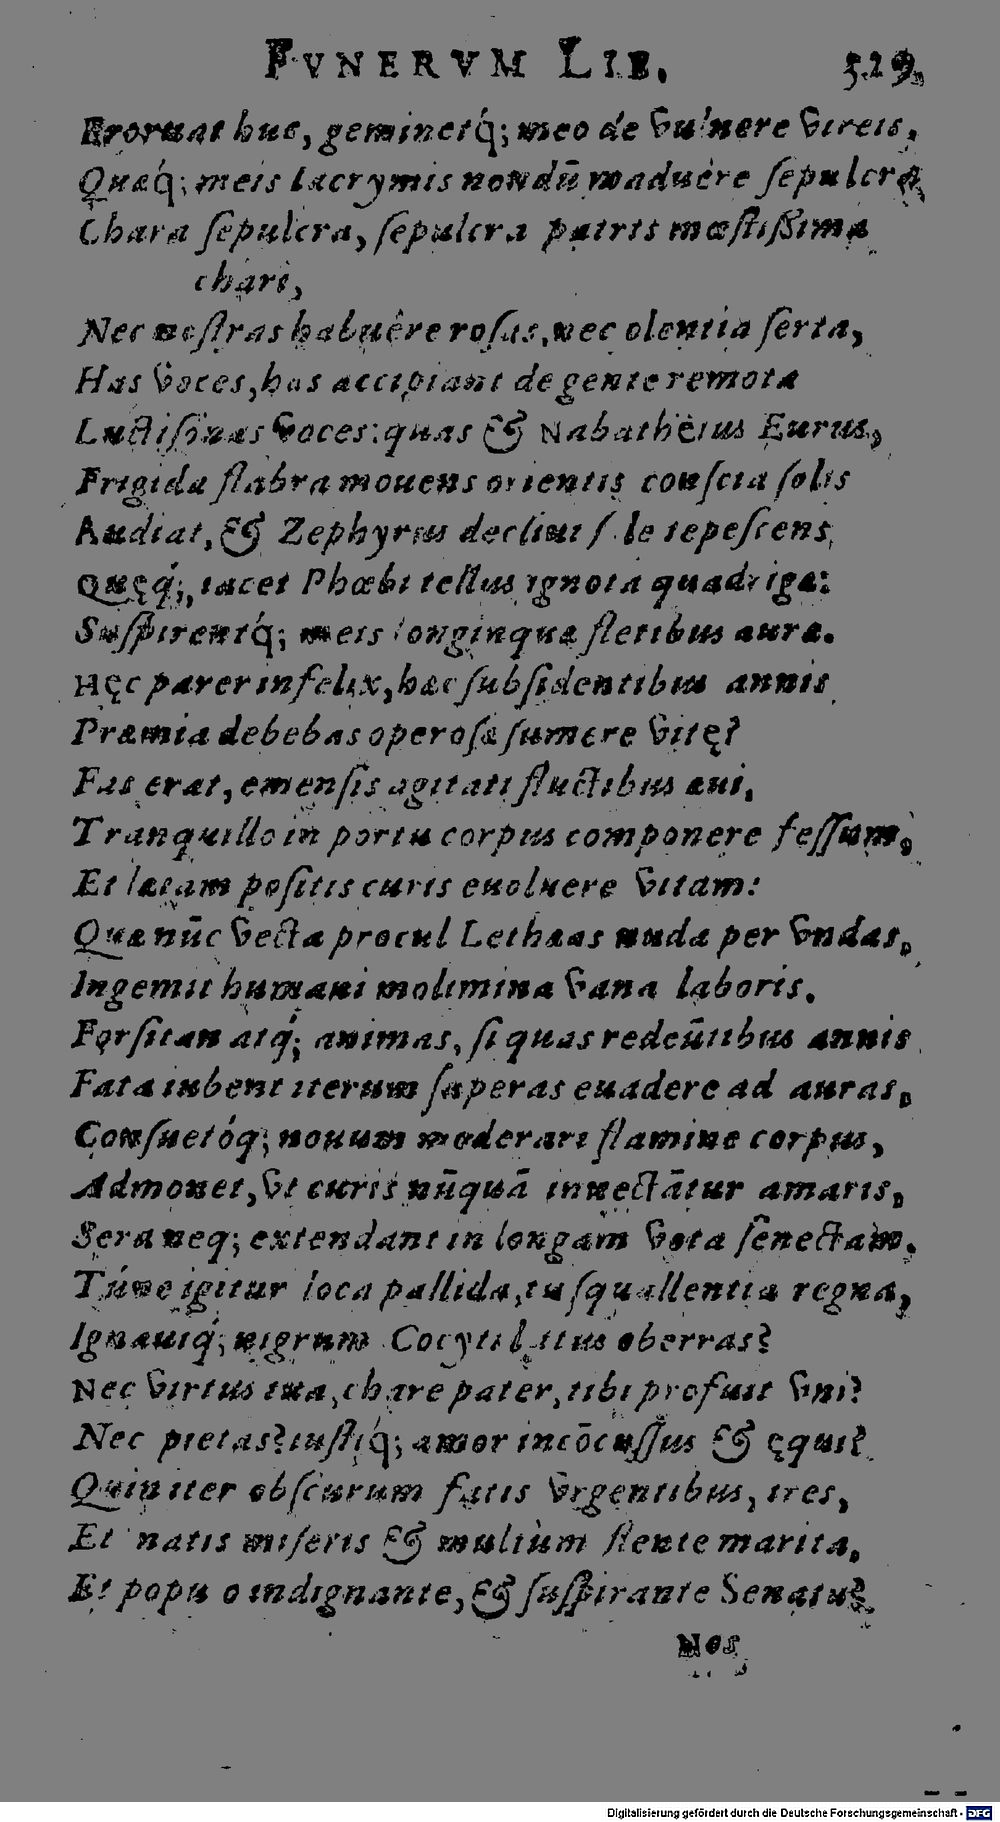 FVNERVM LIB. 529.
Proruat huc, geminetq́; meo de vulnere vireis,
Quæq́; meis lacrymis nondū maduêre sepulcra
Chara sepulcra, sepulcra patris mœstißima
chari,
Nec nostras habuêre rosas, nec olentia serta,
Has voces, has accipiant de gente remota
Luctisonas voces: quas & Nabathęius Eurus,
Frigida flabra mouens orientis conscia solis
Audiat, & Zephyrus decliui sole tepescens,
Quęq́;, iacet Phœbi tellus ignota quadrigæ:
Suspirentq́; meis longinquæ fletibus auræ.
Hęc pater infelix, hæc subsidentibus annis
Præmia debebas operosæ sumere vitę?
Fas erat, emensis agitati fluctibus æui,
Tranquillo in portu corpus componere fessum,
Et lætam positis curis euoluere vitam:
Quæ nūc vecta procul Lethæas nuda per vndas,
Ingemit humani molimina vana laboris.
Forsitan atq́; animas, si quas redeūtibus annis
Fata iubent iterum superas euadere ad auras,
Consuetóq; nouum moderari flamine corpus,
Admonet, vt curis nūquā innectātur amaris,
Sera neq; extendant in longam vota senectam.
Túne igitur loca pallida, tu squallentia regna,
Ignauiq́; nigrum Cocyti litus oberras?
Nec virtus tua, chare pater, tibi profuit vni?
Nec pietas? iustiq́; amor incōcussus & ęqui?
Quin iter obscurum fatis vrgentibus, ires,
Et natis miseris & multùm flente marita,
Et populo indignante, & suspirante Senatu?
Nos
Digitalisierung gefördert durch die Deutsche Forschungsgemeinschaft - DFG